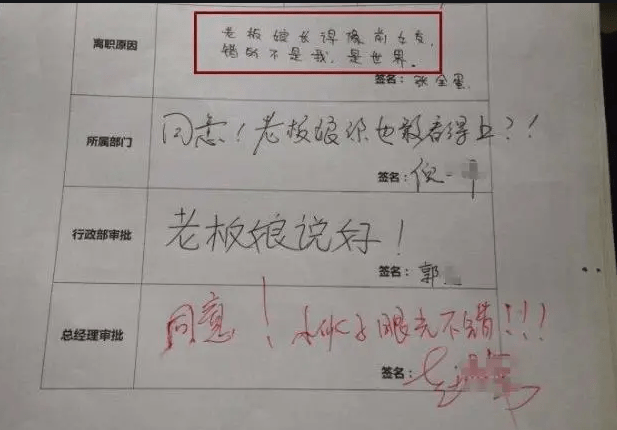 离职原因
老板娘长得像前女友,
错的不是我,是世界。
签名:张全蛋
所属部门
同意!老板娘你也敢看得上?!
签名:倪一
行政部审批
老板娘说好!
签名:郭
总经理审批
同意!小伙子眼光不错!!!
签名: